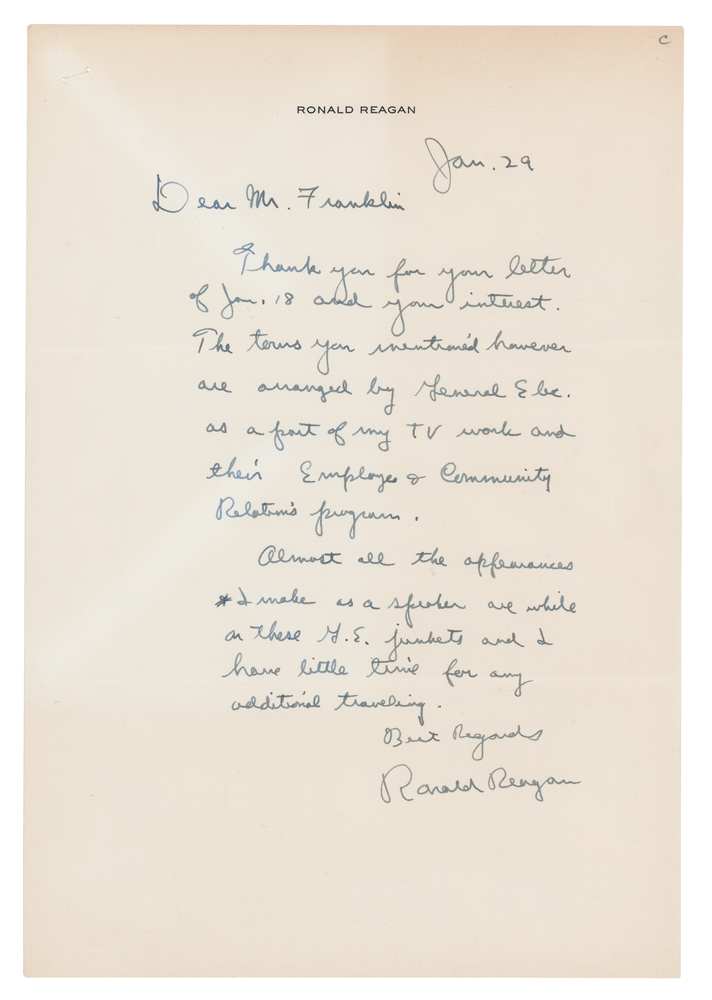 C
RONALD REAGAN
Jan. 29
Dear Mr. Franklin
Thank you for your letter
of Jan. 18 and your interest.
The tours you mentioned however
are arranged by General Elec.
as a part of my TV work and
their Employe & Community
Relations program.
Almost all the appearances
* I make as a speaker are while
on these G.E. junkets and I
have little time for any
additional traveling.
Best Regards
Ronald Reagan